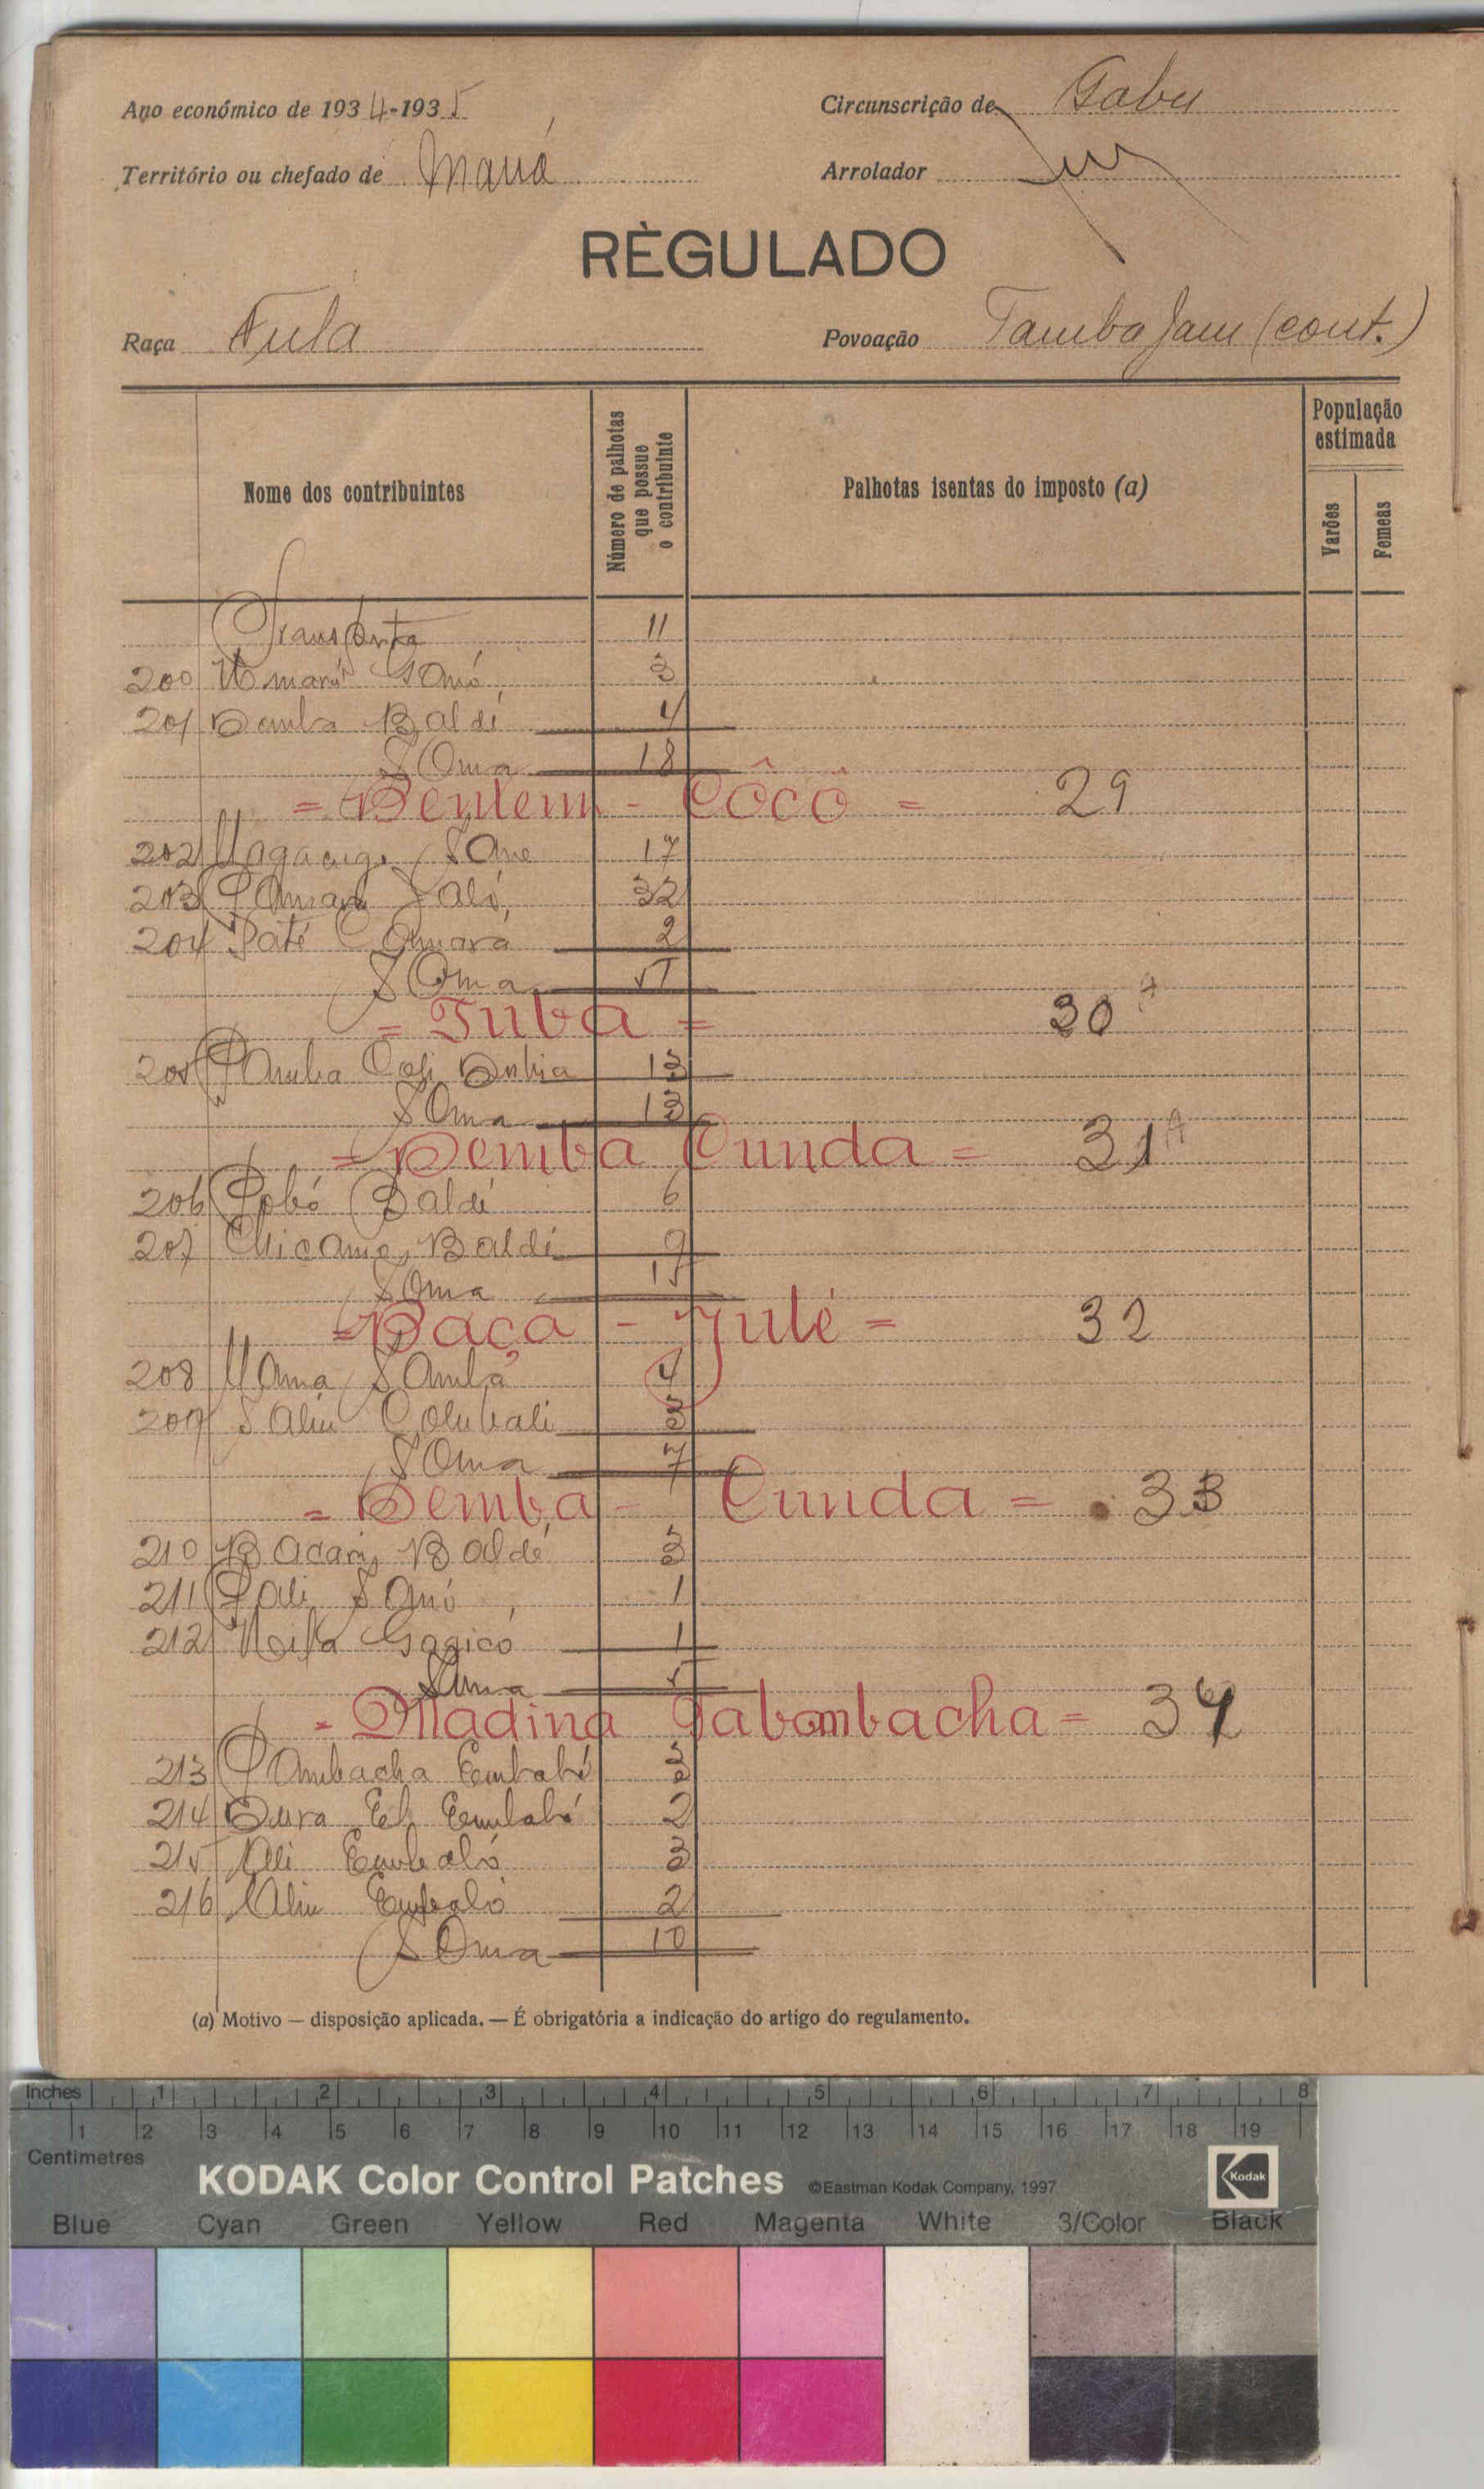 Ano económico de 1934-1935
Circunscrição de Gabu
Território ou chefado de Maná
Arrolador
RÈGULADO
Raça Fula
Povoação Tamba Jam (cont.)
Nome dos contribuintes
Número de palhotas que possue o contribuinte
Palhotas isentas do imposto (a)
População estimada
Varões
Femeas
Transporte 11
200 3
201 Demba Baldé 4
Soma 18
= Bentem - Côcô = 29
202 Sane 17
203 32
204 Paté Camará 2
Soma 51
= Tuba = 30 A
205 13
Soma 13
= Demba Cunda = 31 A
206 Baldé 6
207 Baldé 9
Soma 15
= Paça - Julé = 32
208 4
209 Saliu Colubali 3
Soma 7
= Demba - Cunda = 33
210 Bacari Baldé 3
211 Sanó 1
212 1
Soma 5
= Madina Tabombacha = 34
213 Embaló 3
214 Embaló 2
215 Ali Embaló 3
216 Aliu Embaló 2
Soma 10
(a) Motivo — disposição aplicada. — É obrigatória a indicação do artigo do regulamento.
Inches 1 2 3 4 5 6 7 8
1 2 3 4 5 6 7 8 9 10 11 12 13 14 15 16 17 18 19
Centimetres
KODAK Color Control Patches ©Eastman Kodak Company, 1997 Kodak
Blue Cyan Green Yellow Red Magenta White 3/Color Black